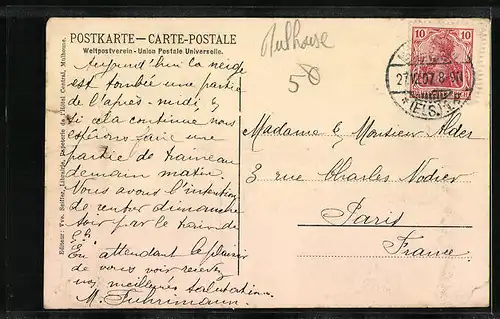 POSTKARTE — CARTE-POSTALE
Weltpostverein - Union Postale Universelle.
Mulhouse
50
10 10
27.12.07. 8-9N
(ELS.)
Editeur: Vve. Seiffer, Librairie, Papeterie de l'Hôtel Central, Mulhouse.
Aujourd'hui la neige
est tombée une partie
de l'après-midi &
si cela continue nous
espérons faire une
partie de traineau
demain matin.
Vous avons l'intention
de rentrer dimanche
soir par le train de
En attendant le plaisir
de vous voir recevez
nos meilleures salutations
M. Fuhrimann.
Madame & Monsieur Alder
3 rue Charles Nodier
Paris
France